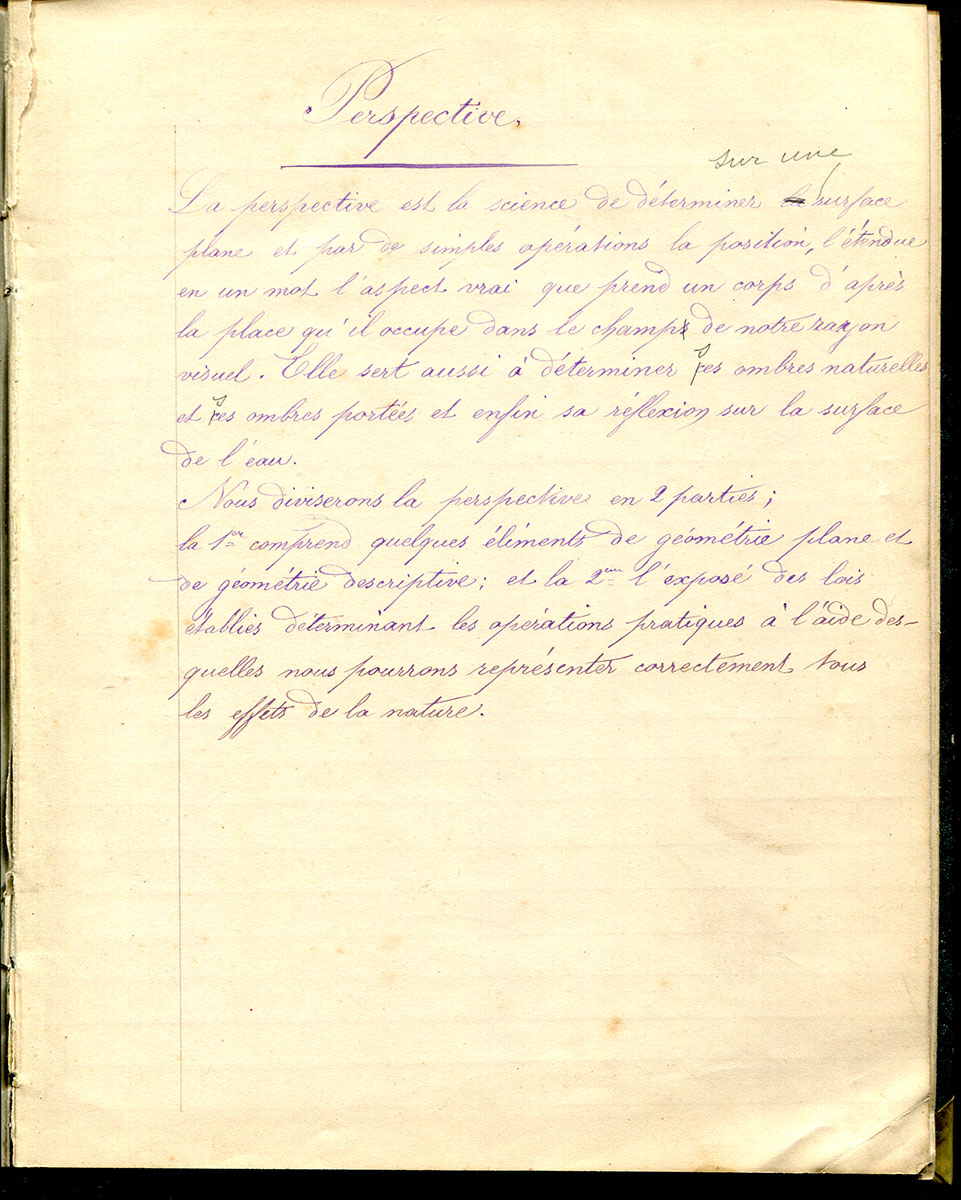 Perspective.
sur une
La perspective est la science de déterminer la surface
plane et par de simples opérations la position, l'étendue
en un mot l'aspect vrai que prend un corps d'après
la place qu'il occupe dans le champs de notre rayon
visuel. Elle sert aussi à déterminer ses ombres naturelles
et ses ombres portées et enfin sa réflexion sur la surface
de l'eau.
Nous diviserons la perspective en 2 parties;
la 1ère comprend quelques éléments de géométrie plane et
de géométrie descriptive; et la 2eme l'exposé des lois
établies déterminant les opérations pratiques à l'aide des-
quelles nous pourrons représenter correctement tous
les effets de la nature.